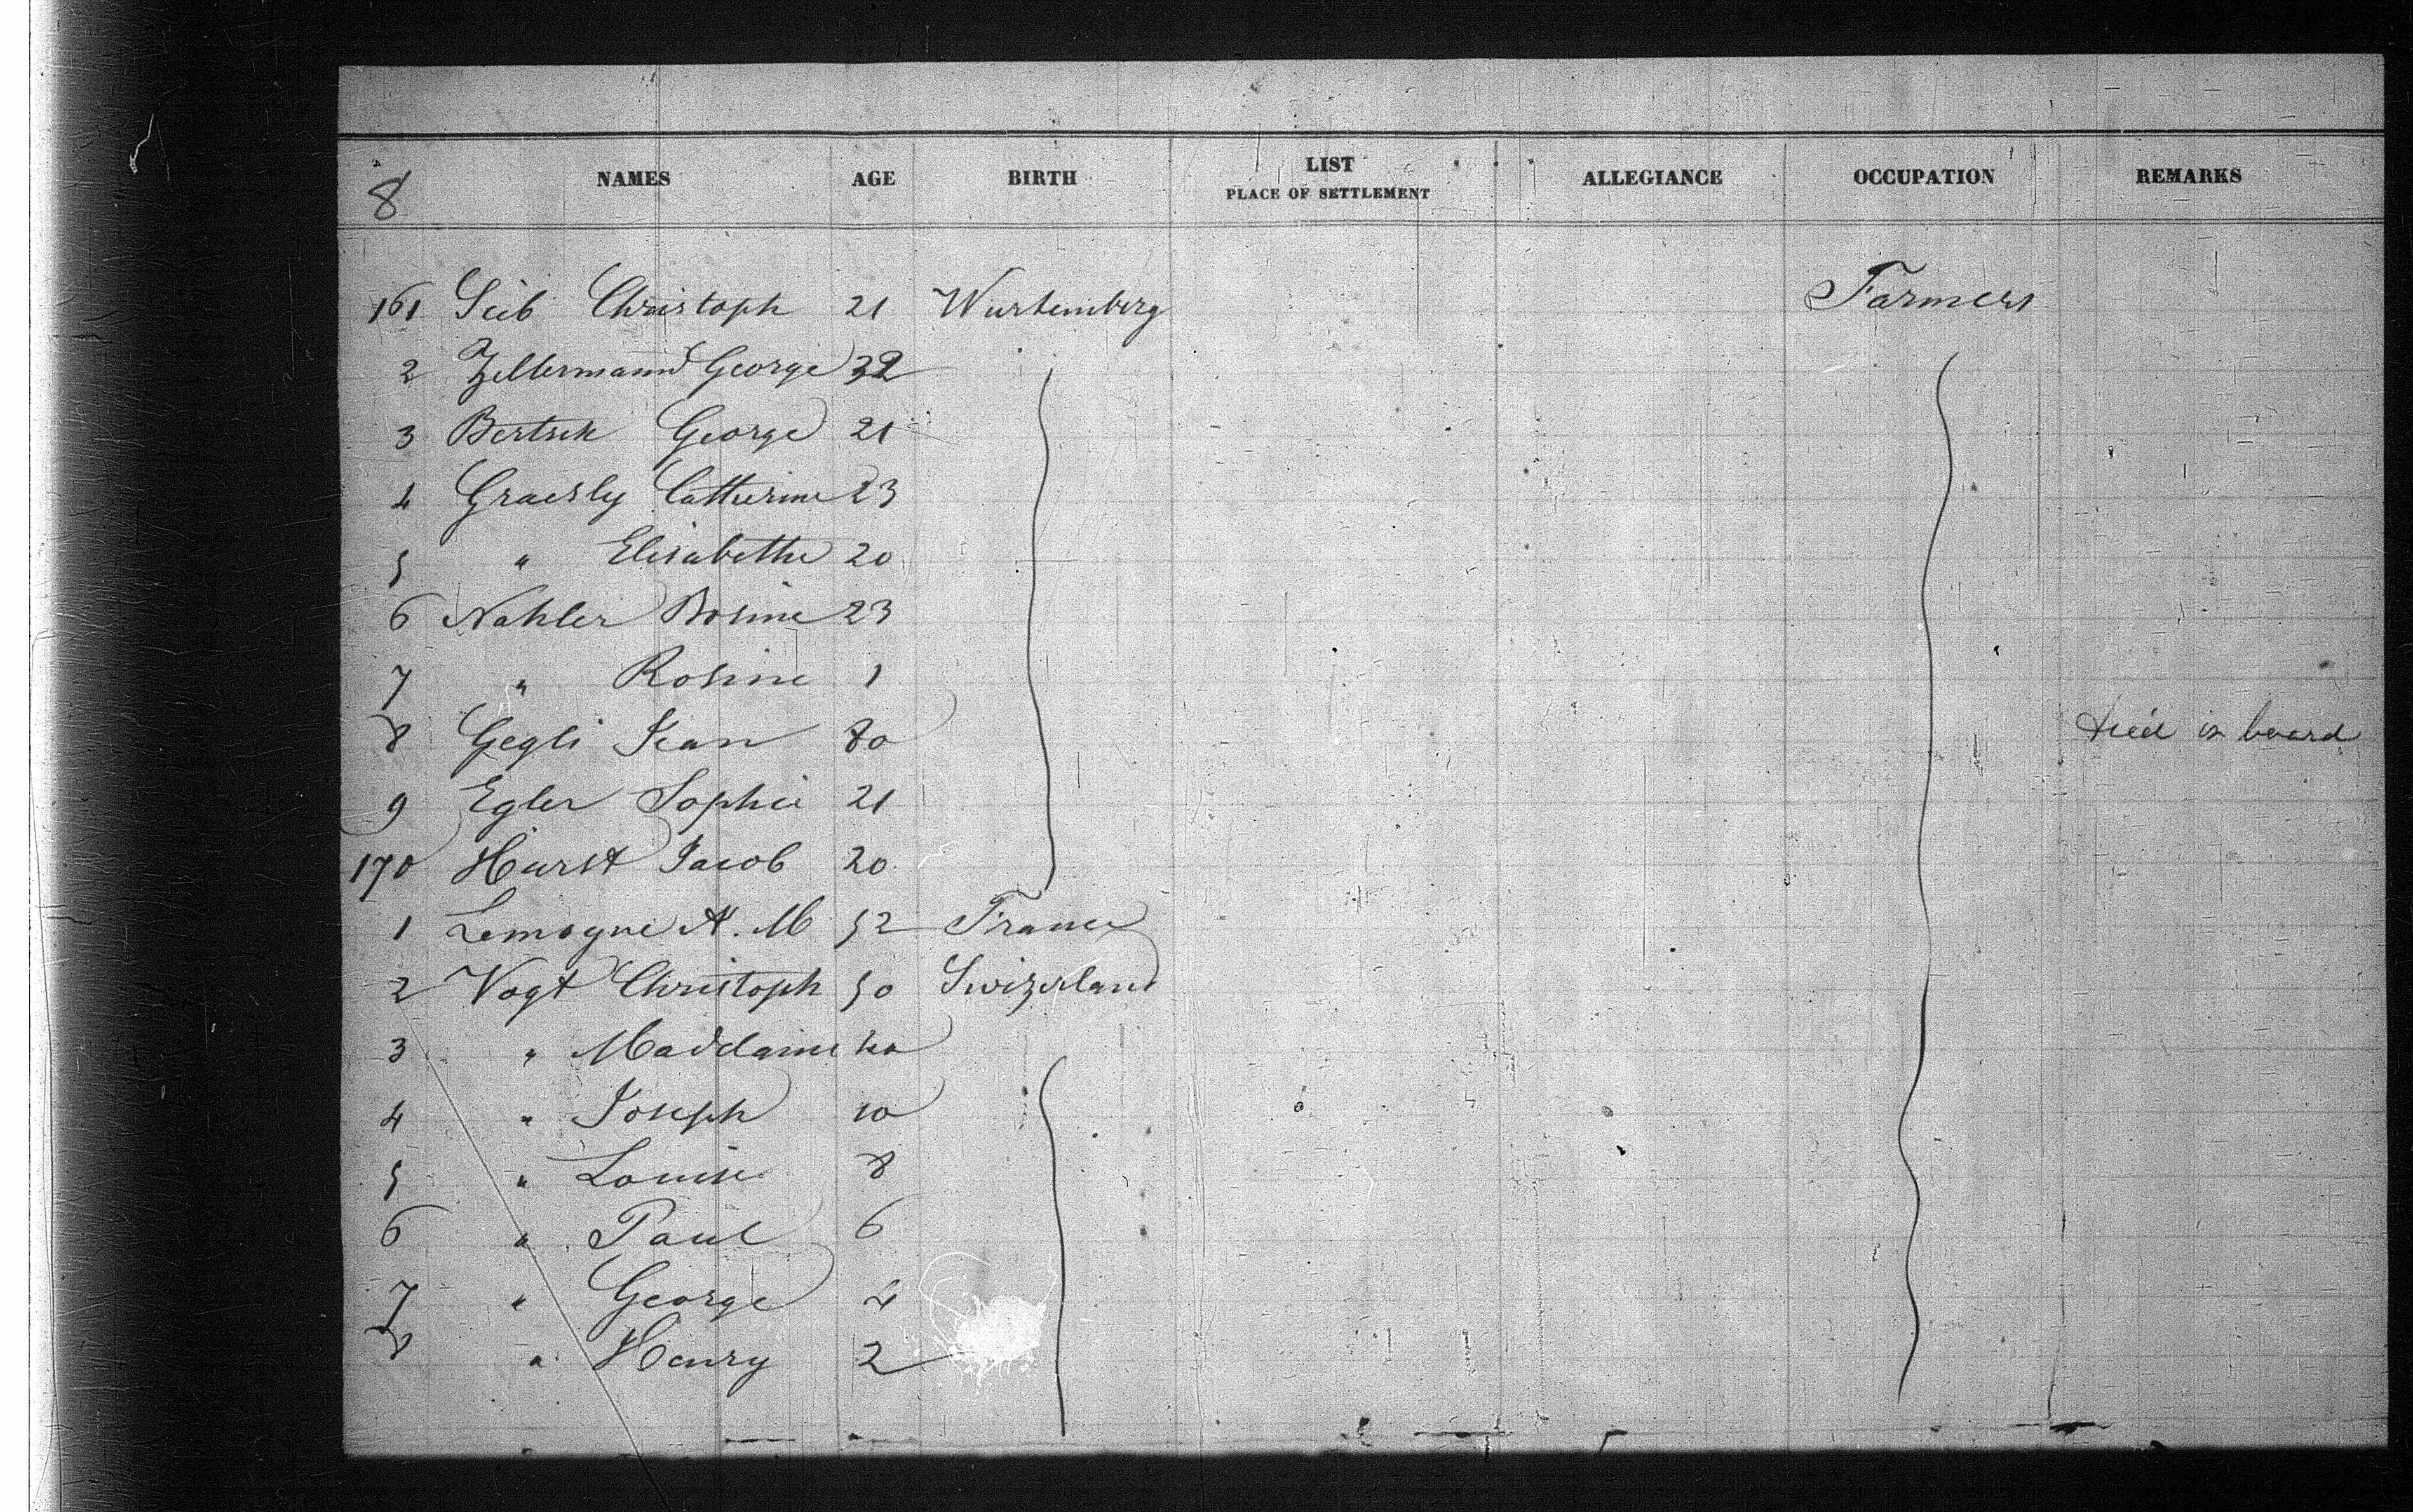 8 NAMES AGE BIRTH LIST PLACE OF SETTLEMENT ALLEGIANCE OCCUPATION REMARKS
161 Seib Christoph 21 Wurtemberg Farmers
2 Zellermann George 32
3 Bertsch George 21
4 Graesly Catherine 23
5 " Elisabethe 20
6 Nahler Rosine 23
7 " Rosine 1
8 Gegli Jean 80 died in board
9 Egler Sophie 21
170 Hurst Jacob 20
1 Lemoyne A. M 52 France
2 Vogt Christoph 50 Swizerland
3 " Maddaine 40
4 " Joseph 10
5 " Louise 8
6 " Paul 6
7 " George 4
8 " Henry 2